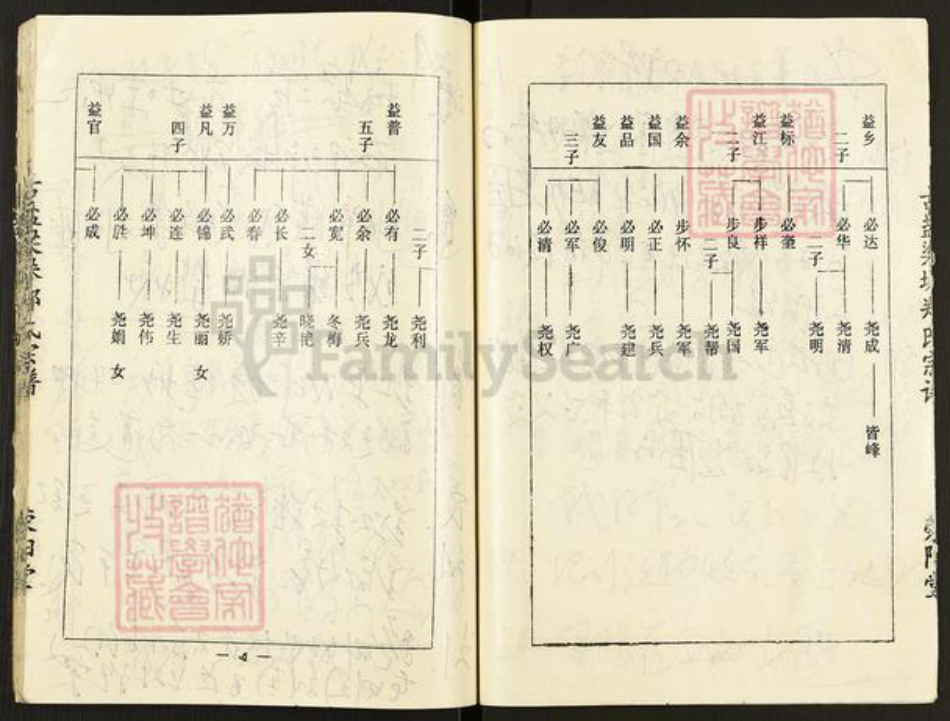 益乡
二子
益标
益江
二子
益余
益国
益品
益友
三子
必达
必华
二子
必奎
步样
步良
二子
步怀
必正
必明
必俊
必军
必清
尧成
尧清
尧明
尧军
尧国
尧帮
尧军
尧兵
尧建
尧广
尧权
皆峰
益普
五子
益万
益凡
四子
益官
二子
必有
必余
必宽
二女
必长
必春
必武
必锦
必连
必坤
必胜
必成
尧利
尧龙
尧兵
冬梅
晓艳
尧辛
尧娇
尧丽 女
尧生
尧伟
尧娟 女
— 4 —
FamilySearch